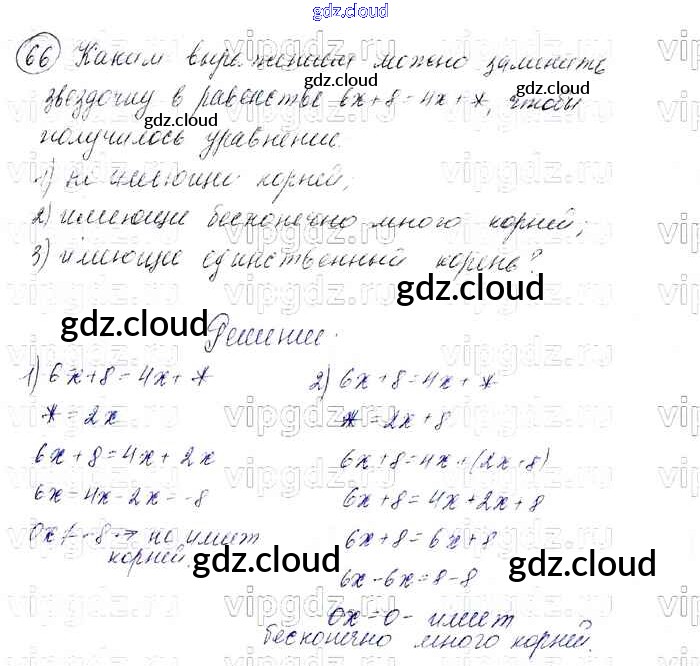 gdz.cloud
66 Каким выражением можно заменить
звездочку в равенстве 6x+8=4x+*, чтобы
получилось уравнение.
1) не имеющие корней;
2) имеющие бесконечно много корней;
3) имеющие единственный корень?
Решение.
1) 6x+8=4x+*
*=2x
6x+8=4x+2x
6x-4x-2x=-8
0x≠-8→ не имеет
корней.
2) 6x+8=4x+*
*=2x+8
6x+8=4x+(2x+8)
6x+8=4x+2x+8
6x+8=6x+8
6x-6x=8-8
0x=0- имеет
бесконечно много корней.
gdz.cloud
gdz.cloud
gdz.cloud
gdz.cloud
gdz.cloud
gdz.cloud
gdz.cloud
vipgdz.ru